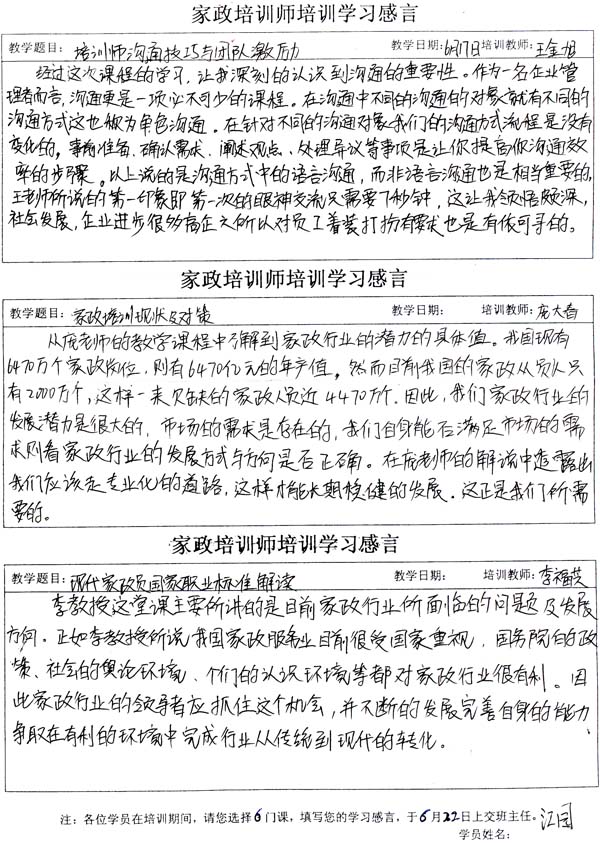 家政培训师培训学习感言
教学题目: 培训师沟通技巧与团队激励 教学日期: 6月17日 培训教师: 王金旭
经过这次课程的学习，让我深刻的认识到沟通的重要性。作为一名企业管
理者而言，沟通更是一项必不可少的课程。在沟通中不同的沟通的对象就有不同的
沟通方式这也称为单色沟通。在针对不同的沟通对象我们的沟通方式流程是没有
变化的。事前准备、确认需求、阐述观点、处理异议等事项是让你提高你沟通效
率的步骤。以上说的是沟通方式中的语言沟通，而非语言沟通也是相当重要的，
王老师所说的第一印象即第一次的眼神交流只需要7秒钟，这让我领悟颇深，
社会发展，企业进步很多高企之所以对员工着装打扮有要求也是有依可寻的。
家政培训师培训学习感言
教学题目: 家政培训现状及对策 教学日期: 培训教师: 庞大春
从庞老师的教学课程中了解到家政行业的潜力的具体值。我国现有
6470万个家政岗位，则有6470亿元的年产值。然而目前我国的家政从员人只
有2000万个，这样一来欠缺的家政人员近4470万个.因此，我们家政行业的
发展潜力是很大的，市场的需求是存在的，我们自身能否满足市场的需
求则看家政行业的发展方式与方向是否正确。在庞老师的解说中透露出
我们应该走专业化的道路，这样才能长期稳健的发展.这正是我们所需
要的。
家政培训师培训学习感言
教学题目: 现代家政员国家职业标准解读 教学日期: 培训教师: 李福芸
李教授这堂课主要所讲的是目前家政行业所面临的问题及发展
方向。正如李教授所说我国家政服务业目前很受国家重视，国务院的政
策、社会的舆论环境、个们的认识环境等都对家政行业很有利。因
此家政行业的领导者应抓住这个机会，并不断的发展完善自身的能力
争取在有利的环境中完成行业从传统到现代的转化。
注: 各位学员在培训期间，请您选择6门课，填写您的学习感言，于6月22日上交班主任。
学员姓名: 江园